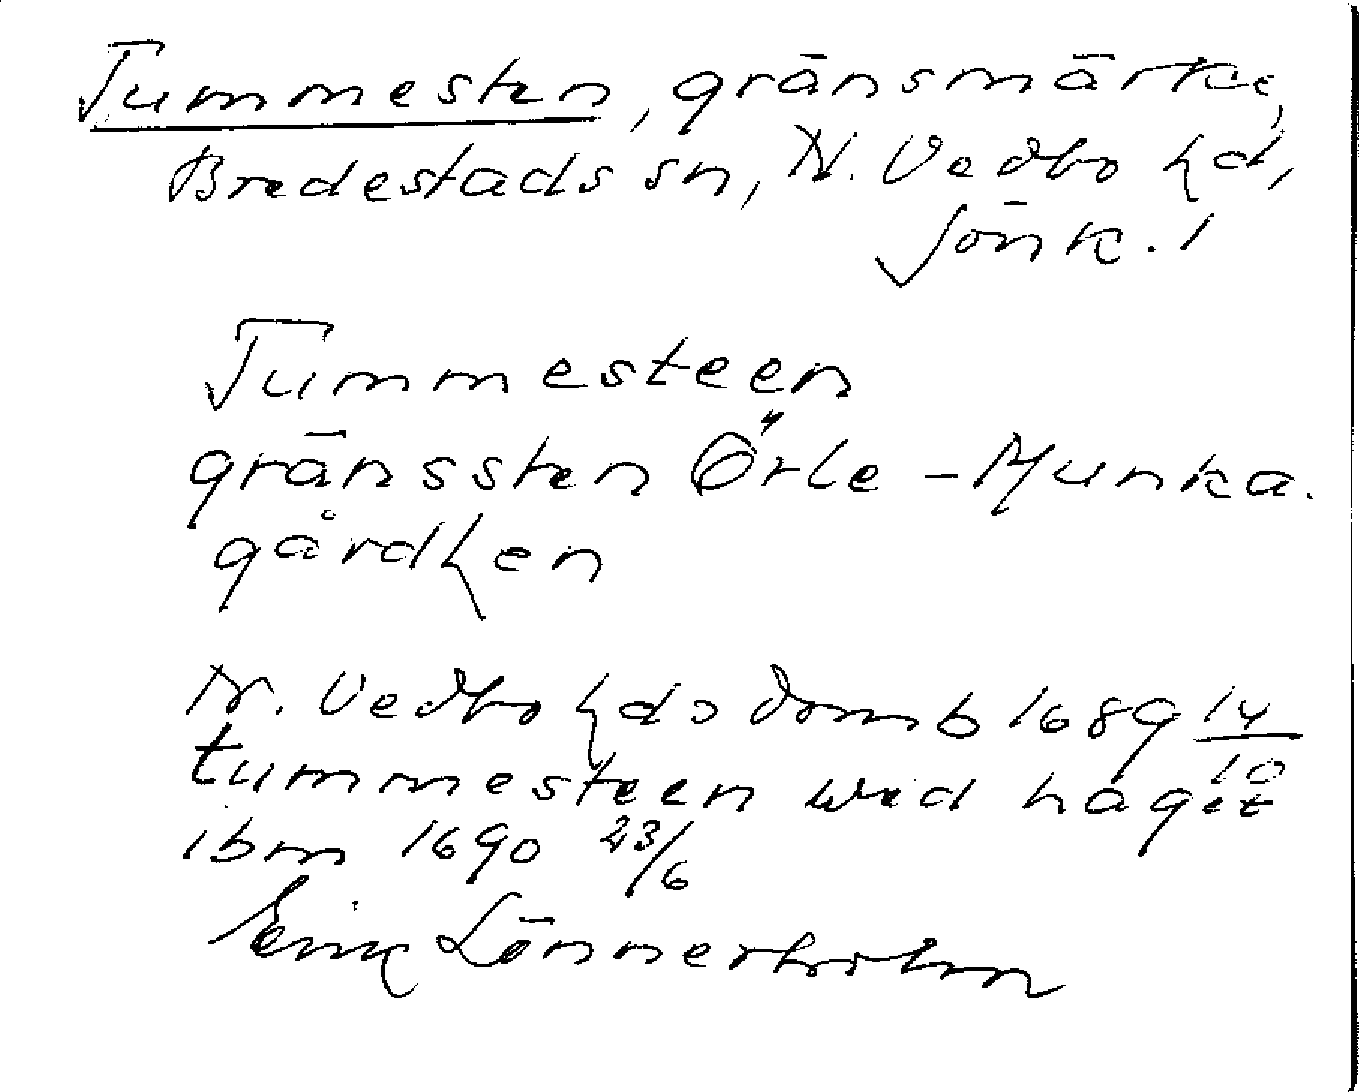 Tummesten, gränsmärke,
Bredestads sn, N. Vedbo hd,
Jönk. l
Tummesteen
gränssten Örle - Munka-
gårdhen
N. Vedbo hds domb 1689 14/10
tummesteen wed haget
ibm 1690 23/6
Eric Lönnerholm